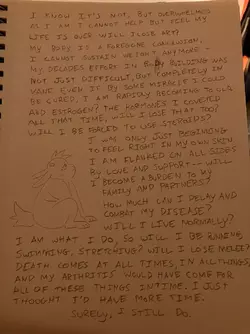 I KNOW IT'S NOT, BUT OVERWHELMED
AS I AM I CANNOT HELP BUT FEEL MY
LIFE IS OVER. WILL I LOSE HER?
MY BODY IS A FOREGONE CONCLUSION,
I CANNOT SUSTAIN WEIGHT ANYMORE -
MY DECADES EFFORT IN BODY BUILDING WAS
NOT JUST DIFFICULT, BUT COMPLETELY IN
VAIN. EVEN IF BY SOME MIRACLE I COULD
BE CURED, I AM RAPIDLY BECOMING TO OLD
AND ESTROGEN? THE HORMONES I COVETED
ALL THAT TIME, WILL I LOSE THAT TOO?
WILL I BE FORCED TO USE STEROIDS?
I WAS ONLY JUST BEGINNING
TO FEEL RIGHT IN MY OWN SKIN
I AM FLANKED ON ALL SIDES
BY LOVE AND SUPPORT - WILL
I BECOME A BURDEN TO MY
FAMILY AND PARTNERS?
HOW MUCH CAN I DELAY AND
COMBAT MY DISEASE?
WILL I LIVE NORMALLY?
I AM WHAT I DO, SO WILL I BE RUNNING,
SWIMMING, STRETCHING? WILL I LOSE
DEATH COMES AT ALL TIMES, IN ALL THINGS,
AND MY ARTHRITIS WOULD HAVE COME FOR
ALL OF THESE THINGS IN TIME. I JUST
THOUGHT I'D HAVE MORE TIME.
SURELY, I STILL DO.